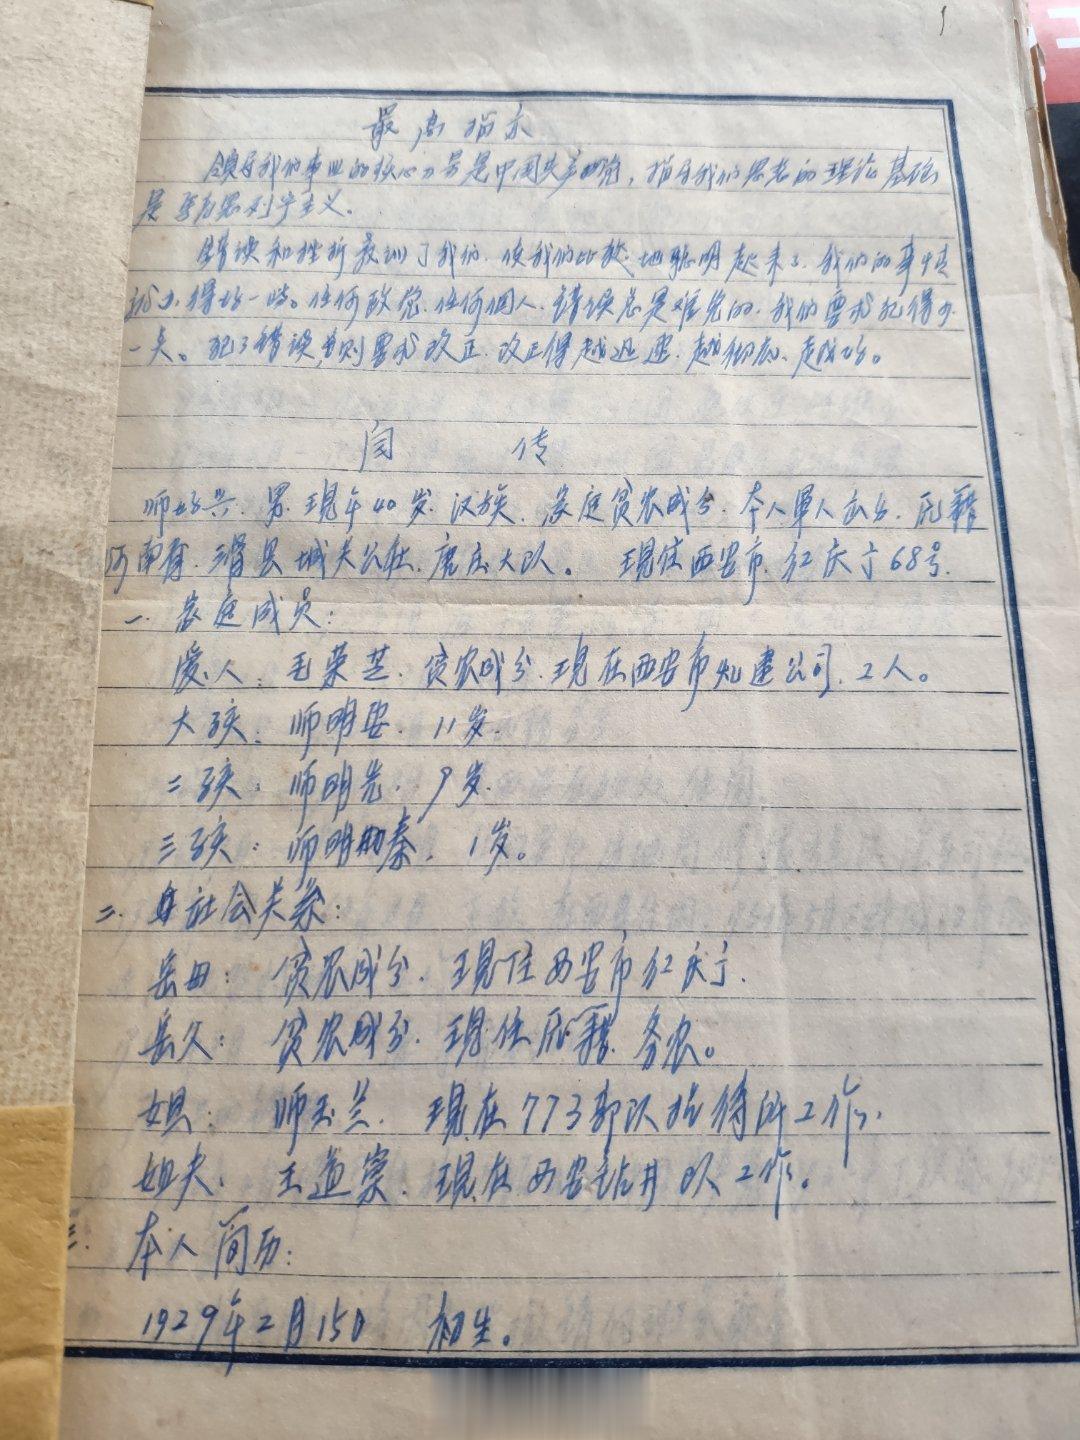 最高指示
领导我们事业的核心力量是中国共产党，指导我们思想的理论基础
是马克思列宁主义。
错误和挫折教训了我们，使我们比较地聪明起来了，我们的事情
就办得好一些。任何政党，任何個人，错误总是难免的，我们要求犯得少
一点。犯了错误，则要求改正，改正得越迅速，越彻底，越好。
传
师好兴，男，现年40岁，汉族，家庭贫农成分，本人軍人出身，原籍
河南省，滑县城关公社，唐庄大队。 现住西安市，红庆宁68号，
一、家庭成员：
爱人：毛荣芝，贫农成分，现在西安市公司，工人。
大孩：师明安，11岁，
二孩：师明先，9岁，
三孩：师明秦，1岁。
二、社会关系：
岳母：贫农成分，现住西安市红庆宁，
岳父：贫农成分，现住原籍，务农。
姐：师玉兰，现在773部队招待所工作，
姐夫：王道，现在西安钻井队工作。
三、本人简历：
1929年2月15日 初生。